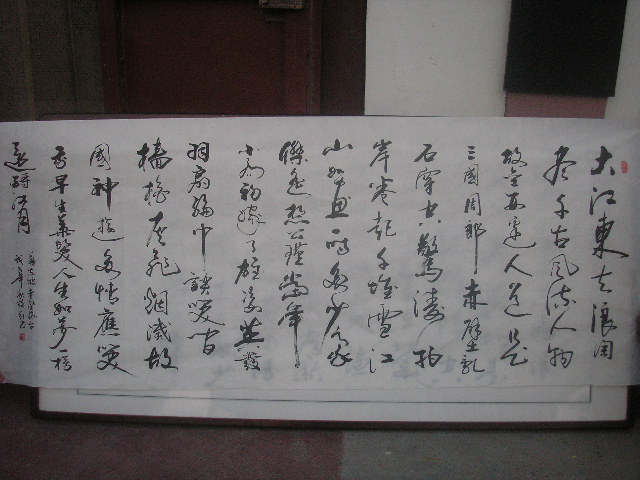 大江東去浪淘
尽千古風流人物
故壘西邊人道是
三國周郎赤壁乱
石穿空驚濤拍
岸卷起千堆雪江
山如畫一時多少豪
傑遙想公瑾當年
小喬初嫁了雄姿英發
羽扇綸巾談笑間
檣櫓灰飛烟滅故
國神遊多情應笑
我早生華髮人生如夢一樽
還酹江月